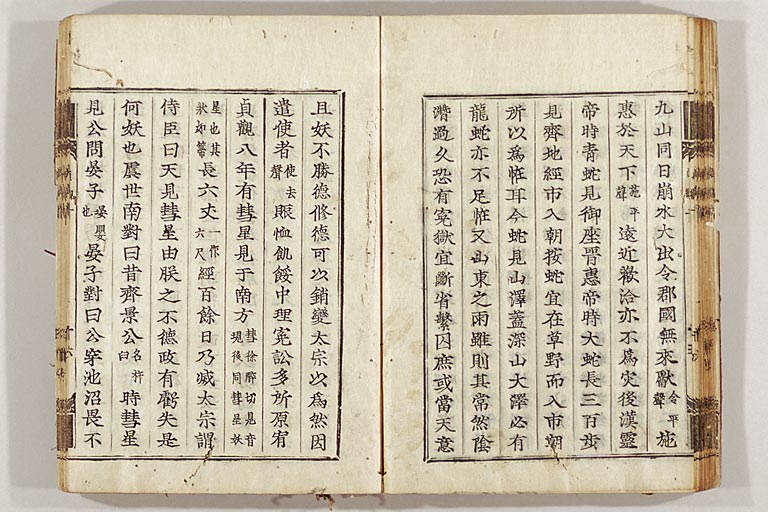 九山同日崩水大出令郡國無來獻令平聲施
惠於天下施平聲遠近歡洽亦不爲灾後漢靈
帝時青蛇見御座晋惠帝時大蛇長三百步
見齊地經市入朝按蛇宜在草野而入市朝
所以爲恠耳今蛇見山澤蓋深山大澤必有
龍蛇亦不足恠又山東之雨雖則其常然陰
濳過久恐有寃獄宜斷省繫囚庶或當天意
且妖不勝德修德可以銷變太宗以爲然因
遣使者使去聲賑恤飢餒中理寃訟多所原宥
貞觀八年有彗星見于南方彗徐醉切見音現後同彗星妖
星也其狀如箒長六丈一作六尺經百餘日乃滅太宗謂
侍臣曰天見彗星由朕之不德政有虧失是
何妖也虞世南對曰昔齊景公名杵臼時彗星
見公問晏子晏嬰也晏子對曰公穿池沼畏不